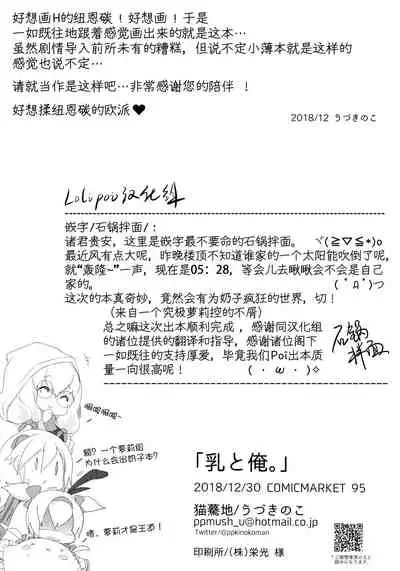 好想画H的纽恩碳！好想画！于是
一如既往地跟着感觉画出来的就是这本…
虽然剧情导入前所未有的糟糕，但说不定小薄本就是这样的
感觉也说不定…
请就当作是这样吧…非常感谢您的陪伴 ！
好想揉纽恩碳的欧派♥
2018/12 うづきのこ
Lolipoi汉化组
嵌字/石锅拌面/：
诸君贵安，这里是嵌字最不要命的石锅拌面。 ヾ(≧▽≦*)o
最近风有点大呢，昨晚楼顶不知道谁家的一个太阳能吹倒了呢，
就“轰隆~”一声，现在是05：28，等会儿去瞅瞅会不会是自己
家的。 ( ﾟДﾟ)つ
这次的本真奇妙，竟然会有为奶子疯狂的世界，切！
（来自一个究极萝莉控的不屑）
总之嘛这次出本顺利完成 ，感谢同汉化组
的诸位提供的翻译和指导，感谢诸位阁下
一如既往的支持厚爱，毕竟我们Poi出本质
量一向很高呢！ ( ・ω・)✧
石锅
拌面
嗯嗯嗯~
额？一个萝莉组
为什么会出奶子本？
啧，萝莉才是王道！
「乳と俺。」
2018/12/30 COMICMARKET 95
猫蓦地/うづきのこ
ppmush_u@hotmail.co.jp
Twitter/@ppkinokoman
印刷所/(株)栄光 様